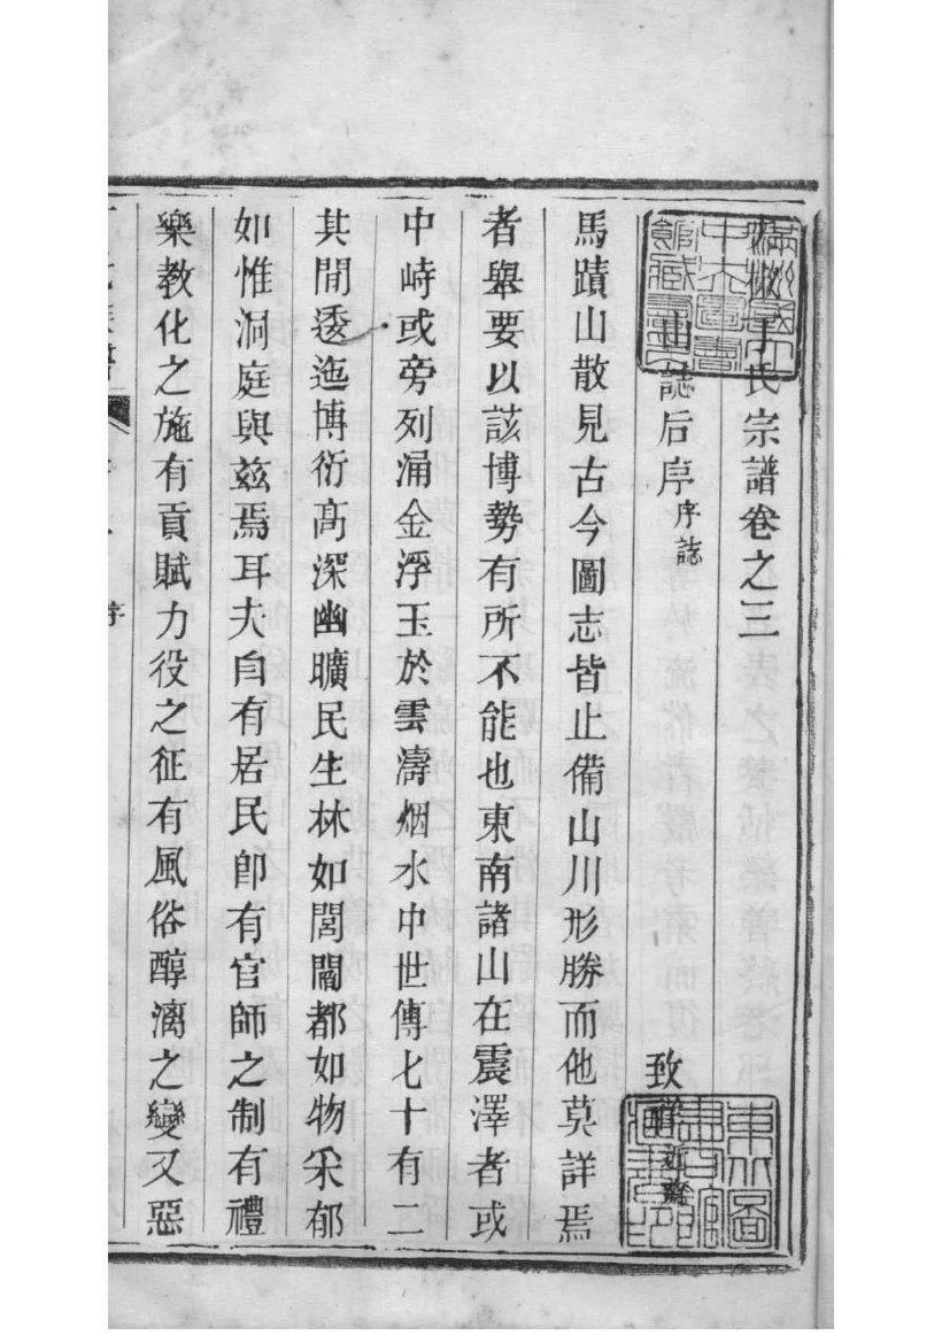 于氏宗譜卷之三
山誌后序序誌
致
馬蹟山散見古今圖志皆止備山川形勝而他莫詳焉
者舉要以該博勢有所不能也東南諸山在震澤者或
中峙或旁列涌金浮玉於雲濤烟水中世傳七十有二
其間逶迤博衍高深幽曠民生林如閭閻都如物采郁
如惟洞庭與茲焉耳夫自有居民卽有官師之制有禮
樂教化之施有貢賦力役之征有風俗醇漓之變又惡
序